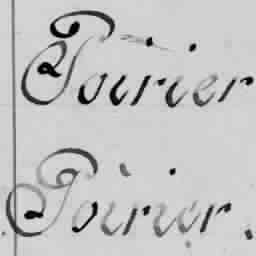 Poirier
Poirier.